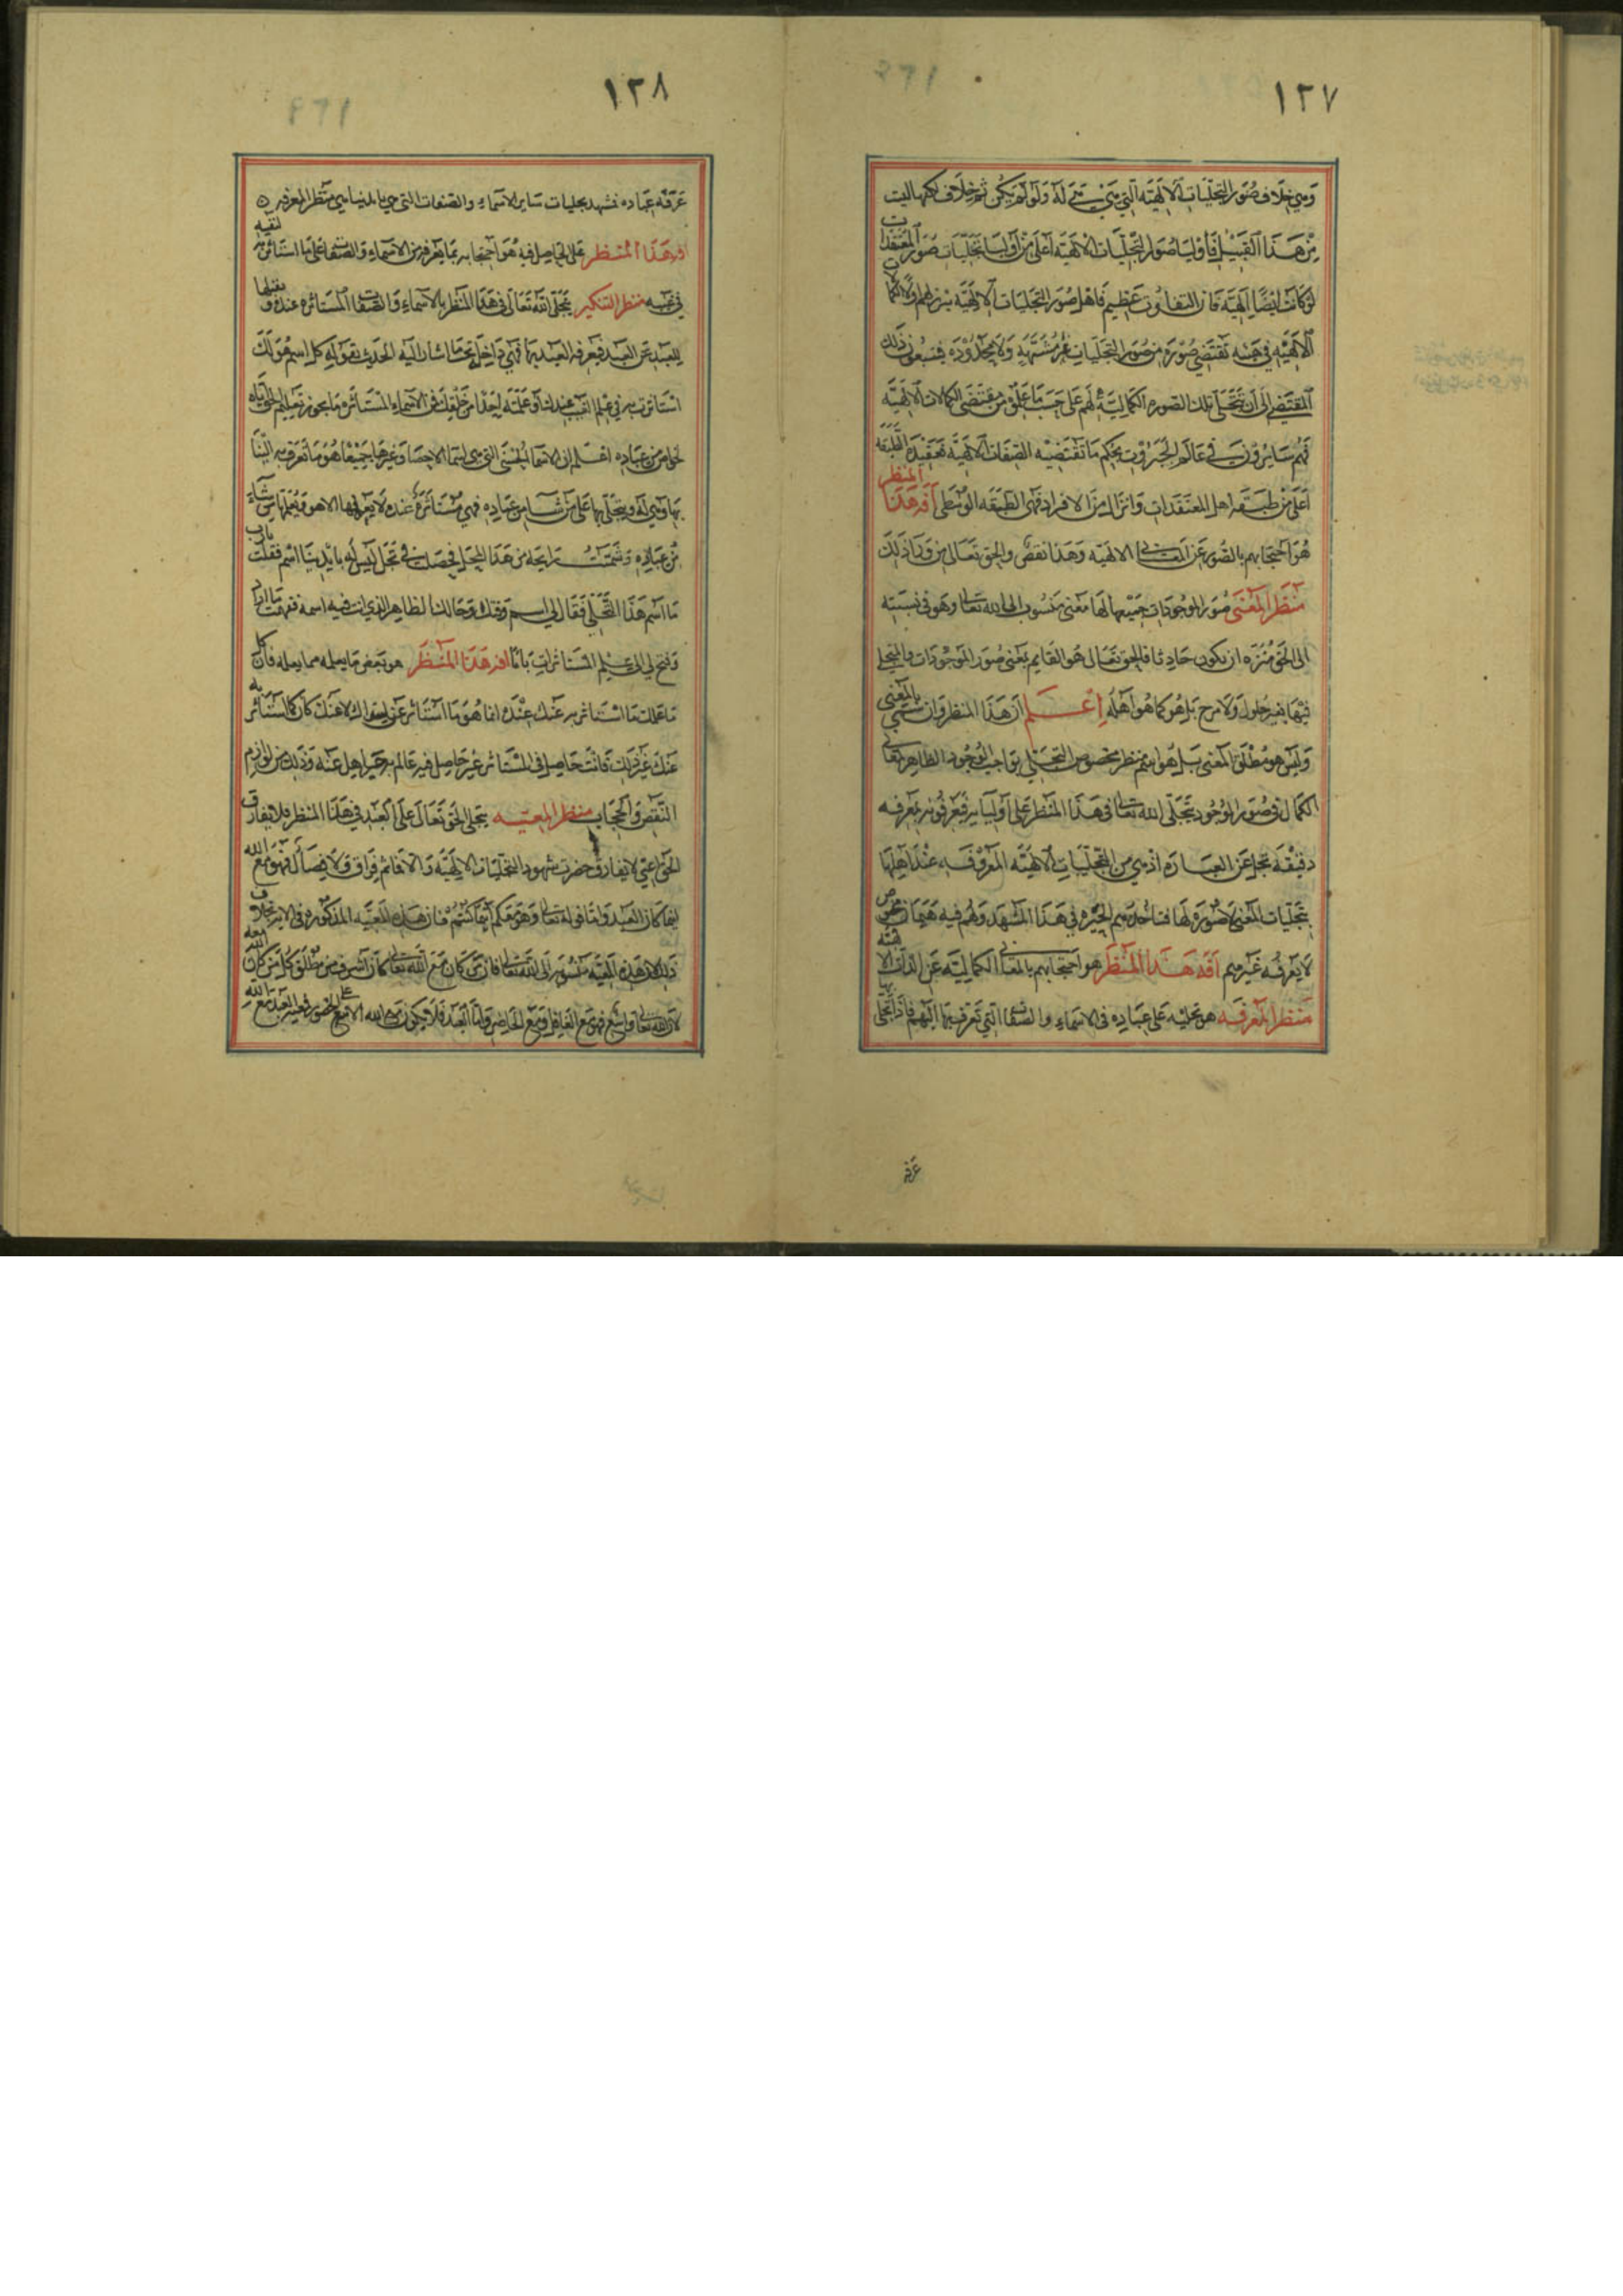 ١٢٧
وهي خلاف صور التجليات الالهية التي هي له ولو لم يكن ثم خلاف لكنها ليست
من هذا القبيل فأوليا صور التجليات الالهية أعلى من أوليا تجليات صور المعتقدات
لو كانت ايضا الهية فان التفاوت عظيم فاهل صور التجليات الالهية
الالهية في تقتضي صورة من صور التجليات غير مشتبهة ولا محدودة ذلك
المقتضى الى أن تتجلى تلك الصورة الكمالية لهم على حسب من مقتضى الكمالات الالهية
فهم سائرون في عالم الجبروت بحكم ما تقتضيه الصفات الالهية فهذه الطبقة
أعلى من طبقة اهل المعتقدات وانزل من الافراد فهي الطبقة الوسطى آفة هذا المنظر
هو احتجابهم بالصور عن المعاني الالهية وهذا نقص والحق تعالى من وراء ذلك
منظر المعنى صور الموجودات جميعها لها معنى منسوب الى الله تعالى وهو في نسبته
الى الحق منزه ان يكون حادثا فالحق تعالى هو القايم بمعنى صور الموجودات والمتجلي
فيها بغير حلول ولا مزج بل هو كما هو اهله اعلم ان هذا المنظر وان سمي بالمعنى
وليس هو مطلق المعنى بل هو اسم منظر مخصوص التجلي بواجب الوجود الظاهر
الكمال في صور الوجود يتجلى الله تعالى في هذا المنظر على أوليايه فيعرفونه بمعرفه
دقيقة تجل عن العبارة اذ هي من التجليات الالهية المعروفة عند اهلها
بتجليات المعنى لا صورة لها فتأخذهم الحيرة في هذا المشهد ولهم فيه هيمان مخصوص
لا يعرفه غيرهم آفة هذا المنظر هو احتجابهم بالمعاني الكمالية عن الذات الالهية
منظر المعرفة هو تجليه على عباده في الاسماء والصفات التي تعرف بها اليهم فاذا تجلى بها
عرفه
١٢٨
عرفه عباده فشهد بجليات ساير الاسماء والصفات التي هي بايدينا هي منظر المعرفة
آفة هذا المنظر على الحاصل فيه هو احتجابه بما يعرفه من الاسماء والصفات على ما استأثر به لنفسه
في غيبه منظر التنكير يتجلى الله تعالى في هذا المنظر بالاسماء والصفات المستأثرة عنده
للعبد عن العبد فيعرفه العبد بها فهي داخل تحت ما اشار اليه الحديث بقوله كل اسم هو لك
استأثرت به في علم الغيب عندك أو علمته احدا من خلقك فمن الاسماء المستأثرة ما يجوز تعليم الحق اياه
لخواص من عباده اعلم ان الاسماء الحسنى التي هي الاحصا وغيرها جميعا هو ما تعرف به الينا
بها وهي له ويتجلى بها على من شاء من عباده فهي مستأثرة عنده لا يعرفها الا هو ويعلمها من شاء
من عباده وشممت رايحة من هذا المتجلى فحصلت في تجل ليس له بايدينا اسم فقلت يا رب
ما اسم هذا التجلي فقال لي اسم وقتك وحالك الظاهر الذي انت فيه اسمه ففهمت ما اراد
وفتح لي الى علم المستأثرات بابا آفة هذا المنظر هو بعض ما يعلمه مما يعلمه فان كل
ما علمك مما استأثر به عنك عنده انما هو ما استأثر عن سواك لا عنك كان كما استأثر به
عنك غير ذلك فأنت حاصل في المستأثر غير حاصل فيه عالم به جاهل عنه وذلك من لوازم
النقص والحجاب منظر المعية يتجلى الحق تعالى على العبد في هذا المنظر فلا يفارق
الحق اعني لا يفارق حضرت شهود التجليات الالهية والا فما ثم فراق ولا فصال فهو مع الله
اينما كان العبد واما قوله تعالى وهو معكم اينما كنتم فان هذه المعية المذكورة في الاية بخلاف
ذلك لان هذه المعية منسوبة الى الله تعالى فان من كان مع الله تعالى كان اشرف من مطلق كل من كان الله معه
لان الله تعالى واسع فهو مع الغافل ومع الحاضر واما العبد فلا يكون مع الله الا مع الحضور فمعية العبد مع الله